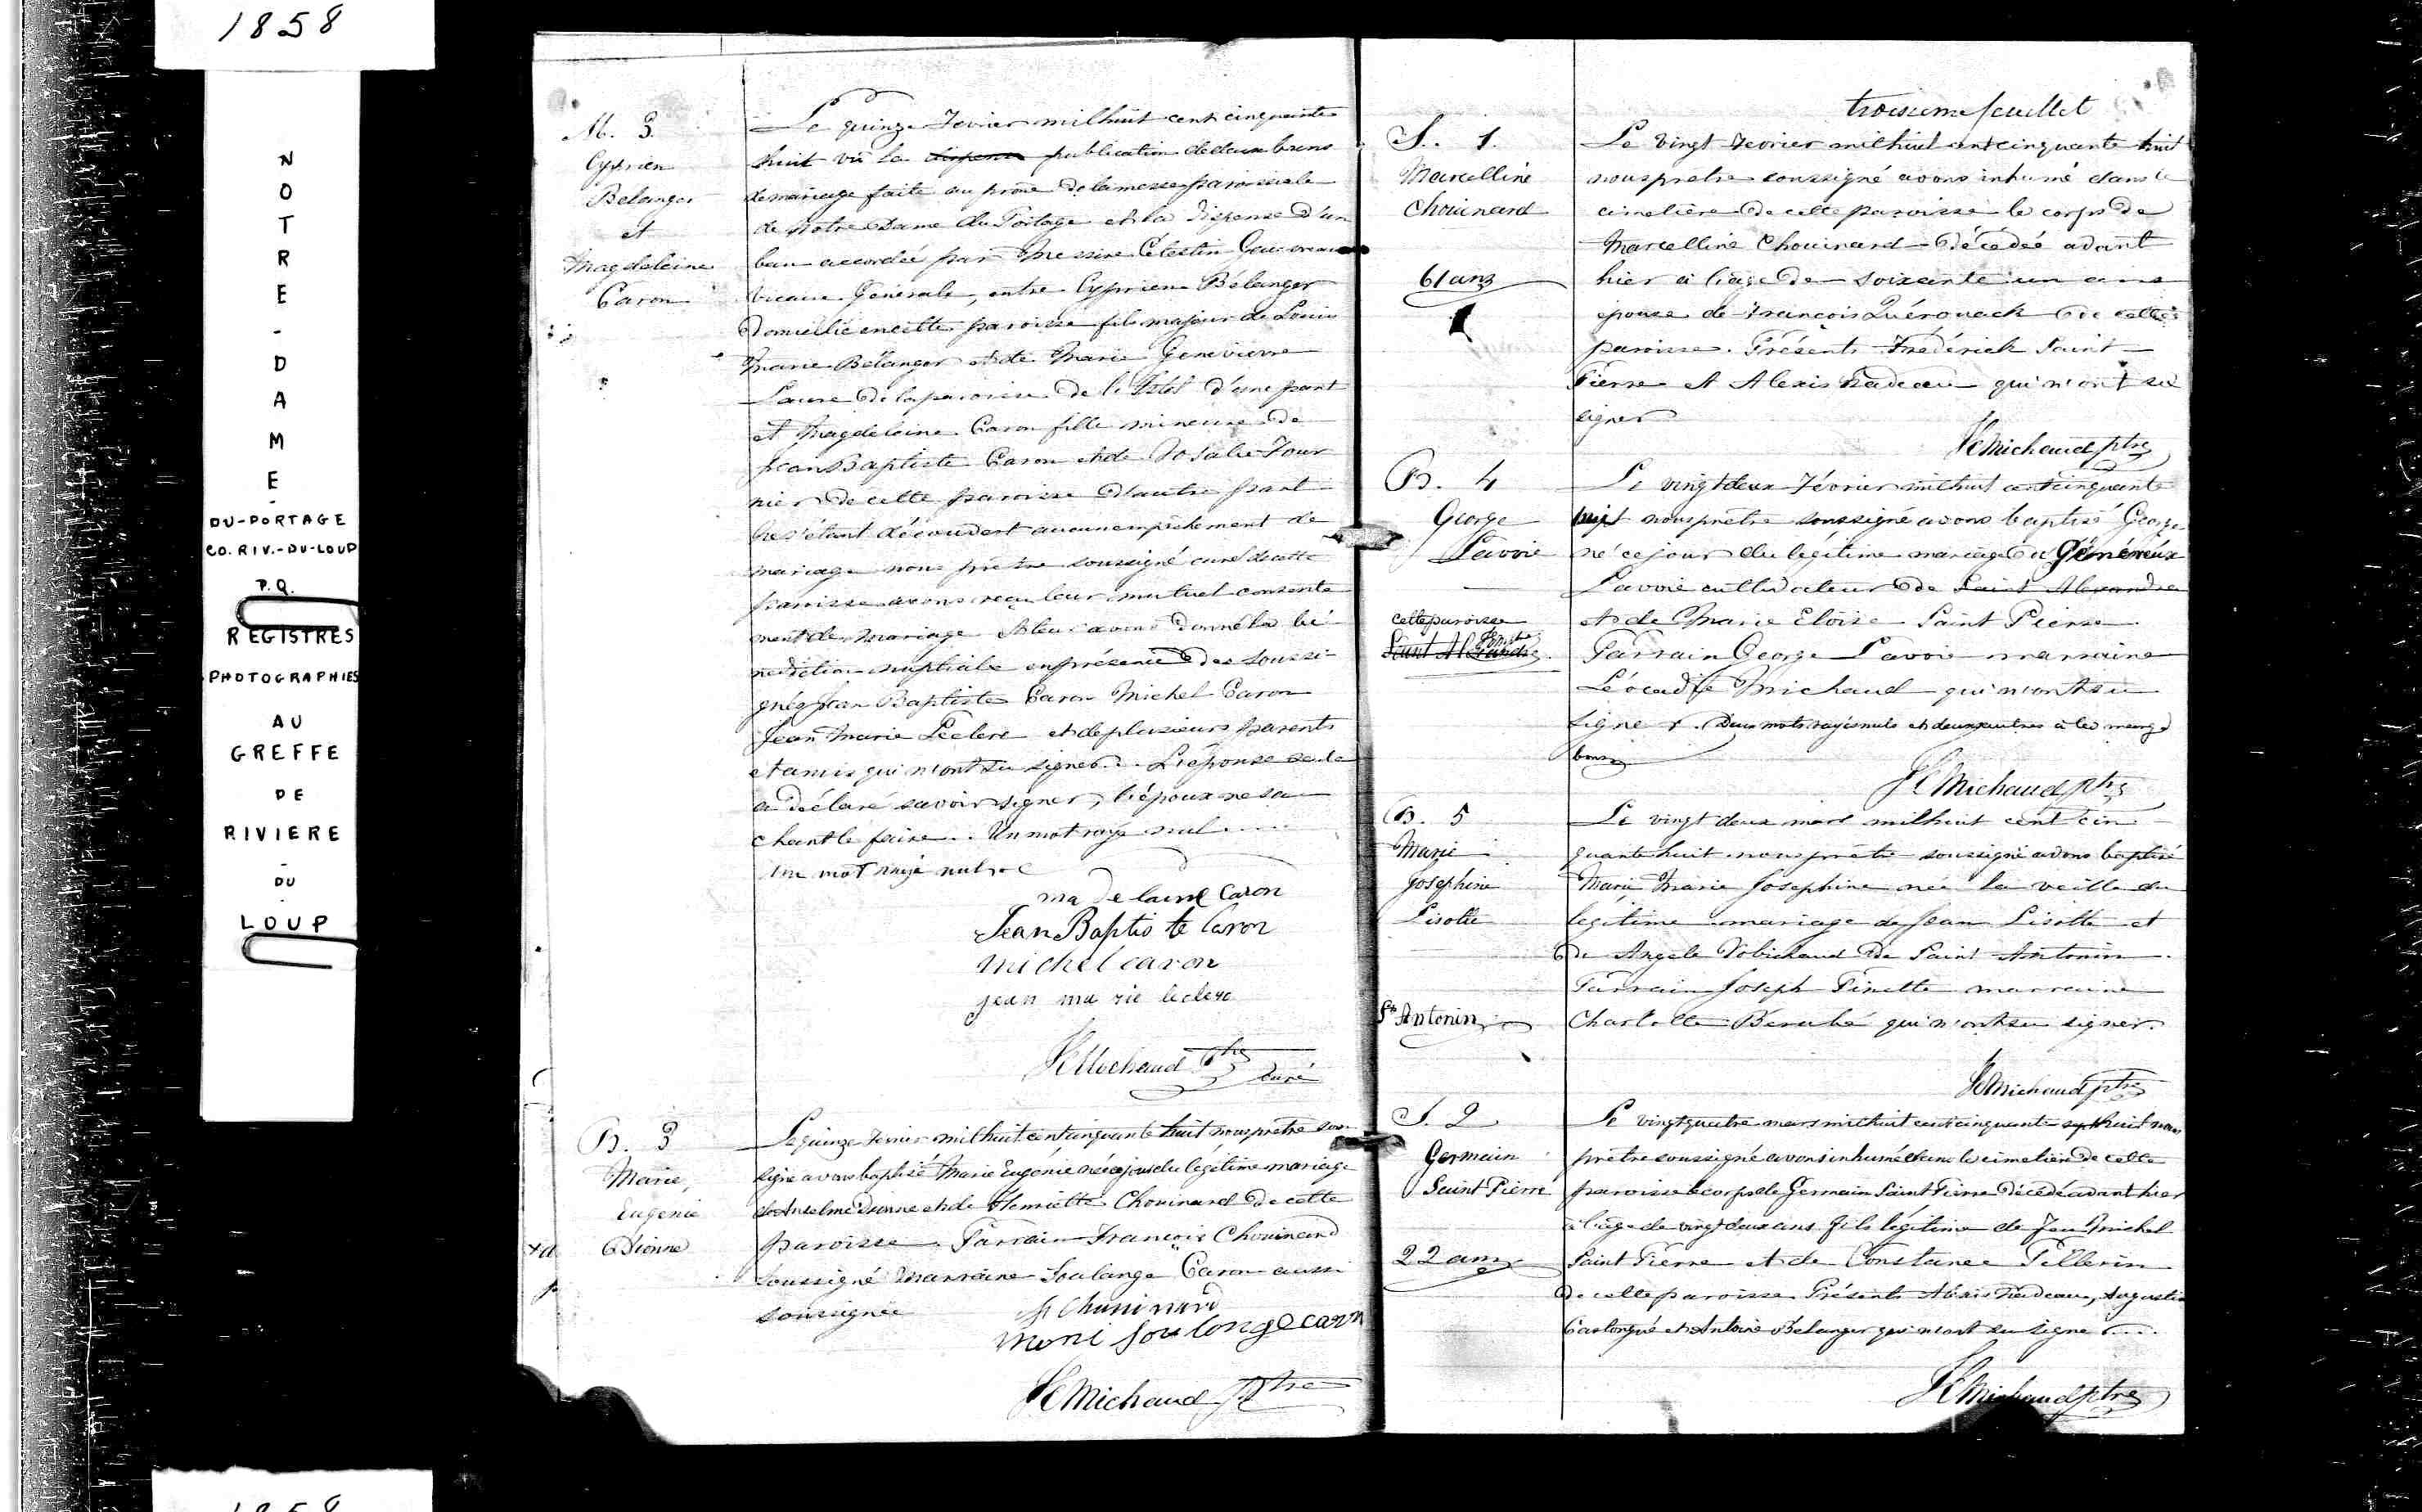 1858
NOTRE-DAME-
DU-PORTAGE
CO. RIV.-DU-LOUP
P.Q.
REGISTRES
PHOTOGRAPHIES
AU
GREFFE
DE
RIVIERE
-
DU
-
LOUP
M. 3
Cyprien
Belanger
et
Magdeleine
Caron
Le quinze Fevrier mil huit cent cinquante
huit vû la dispense publication de deux bans
de mariage faite au prône de la messe paroissiale
de Notre Dame du Portage et la dispense d'un
ban accordée par Messire Célestin Gauvreau
vicaire Générale, entre Cyprien Bélanger
domicilié en cette paroisse fils majeur de Louis
Marie Bélanger et de Marie Genevieve
de la paroisse de l'Islet d'une part
et Magdeleine Caron fille mineure de
Jean Baptiste Caron et de Rosalie Four
nier de cette paroisse d'autre part
Ne s'étant découvert aucun empêchement de
mariage nous prêtre soussigné curé de cette
paroisse avons reçu leur mutuel consente
ment de mariage et leur avons donné la bé
nédiction nuptiale en présence des soussi
gnés Jean Baptiste Caron Michel Caron
Jean Marie Leclerc et de plusieurs parents
et amis qui n'ont su signer. L'épouse seule
a déclaré savoir signer, l'époux ne sa
chant le faire. Un mot rayé nul
Un mot rayé nul
ma de laine Caron
Jean Baptis te Caron
michel caron
jean ma rie leclerc
Michaud Ptre
curé
B. 3
Marie
Eugenie
Dionne
Le quinze Fevrier mil huit cent cinquante huit nous prêtre sous
signé avons baptisé Marie Eugénie née ce jour du légitime mariage
de Anselme Dionne et de Henriette Chouinard de cette
paroisse. Parrain François Chouinard
soussigné marraine Soulange Caron aussi
soussignée
f Chouinard
Mari Soulonge caron
Michaud Ptre
troisième feuillet
S. 1.
Marcelline
Chouinard
61 ans
Le vingt Fevrier mil huit cent cinquante huit
nous pretre soussigné avons inhumé dans le
cimetière de cette paroisse le corps de
Marcelline Chouinard décedée avant
hier à l'âge de soixante un ans
epouse de François Quérouack de cette
paroisse. Présents Frederick Saint
Pierre et Alexis Nadeau qui n'ont su
signer
Michaud ptre
B. 4
George
Lavoie
cette paroisse
Saint Alexandre
Le vingt deux Février mil huit cent cinquante
huit nous prêtre soussigné avons baptisé George
né ce jour du légitime mariage de Généreux
Lavoie cultivateur de Saint Alexandre
et de Marie Eloise Saint Pierre
Parrain George Lavoie marraine
Léocadie Michaud qui n'ont su
signer. Deux mots rayés nuls et deux autres à la marge
bons
Michaud ptre
B. 5
Marie
Josephine
Lisotte
St Antonin
Le vingt deux mars mil huit cent cin
quante huit nous prêtre soussigné avons baptisé
Marie Marie Josephine née la veille du
légitime mariage de Jean Lisotte et
de Angele Robichaud de Saint Antonin.
Parrain Joseph Pinette marraine
Charlotte Berubé qui n'ont su signer.
Michaud ptre
S. 2
Germain
Saint Pierre
22 ans
Le vingt quatre mars mil huit cent cinquante sept huit nous
prêtre soussigné avons inhumé dans le cimetière de cette
paroisse le corps de Germain Saint Pierre décédé avant hier
à l'âge de vingt deux ans fils légitime de Feu Michel
Saint Pierre et de Constance Pellerin
de cette paroisse Présents Alexis Nadeau, Augustin
Castongué et Antoine Bélanger qui n'ont su signer.
Michaud ptre
1858